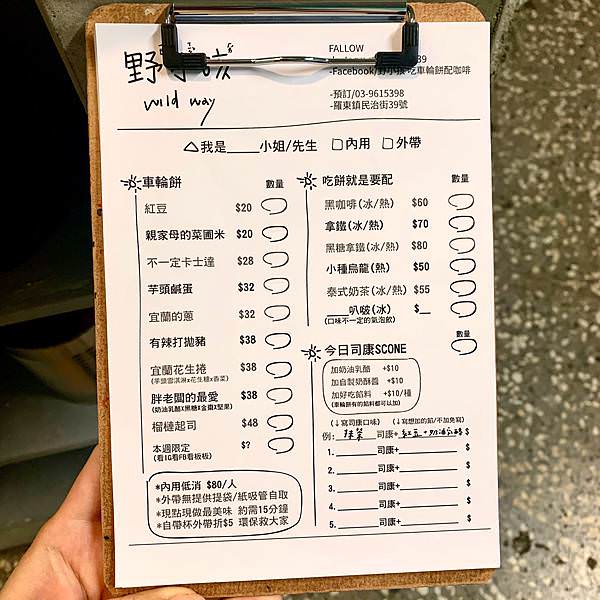 野
wild way
FALLOW
39
-Facebook/野小孩 吃車輪餅配咖啡
-預訂/03-9615398
-羅東鎮民治街39號
△我是____小姐/先生 □內用 □外帶
車輪餅 數量
紅豆 $20
親家母的菜圃米 $20
不一定卡士達 $28
芋頭鹹蛋 $32
宜蘭的蔥 $32
有辣打拋豬 $38
宜蘭花生捲 $38
(芋頭雪淇淋x花生糖x香菜)
胖老闆的最愛 $38
(奶油乳酪x黑糖x金棗x堅果)
榴槤起司 $48
本週限定 $?
(看IG看FB看板板)
*內用低消 $80/人
*外帶無提供提袋/紙吸管自取
*現點現做最美味 約需15分鐘
*自帶杯外帶折$5 環保救大家
吃餅就是要配 數量
黑咖啡(冰/熱) $60
拿鐵(冰/熱) $70
黑糖拿鐵(冰/熱) $80
小種烏龍(熱) $50
泰式奶茶(冰/熱) $55
____叭啵(冰) $_
(口味不一定的氣泡飲)
今日司康SCONE 數量
加奶油乳酪 +$10
加自製奶酥醬 +$10
加好吃餡料 +$10/種
(車輪餅有的餡料都可以加)
(↓寫司康口味) (↓寫想加的餡/不加免寫)
例: 抹茶 司康+ 紅豆+奶油乳酪 $
1.____司康+____ $
2.____司康+____ $
3.____司康+____ $
4.____司康+____ $
5.____司康+____ $